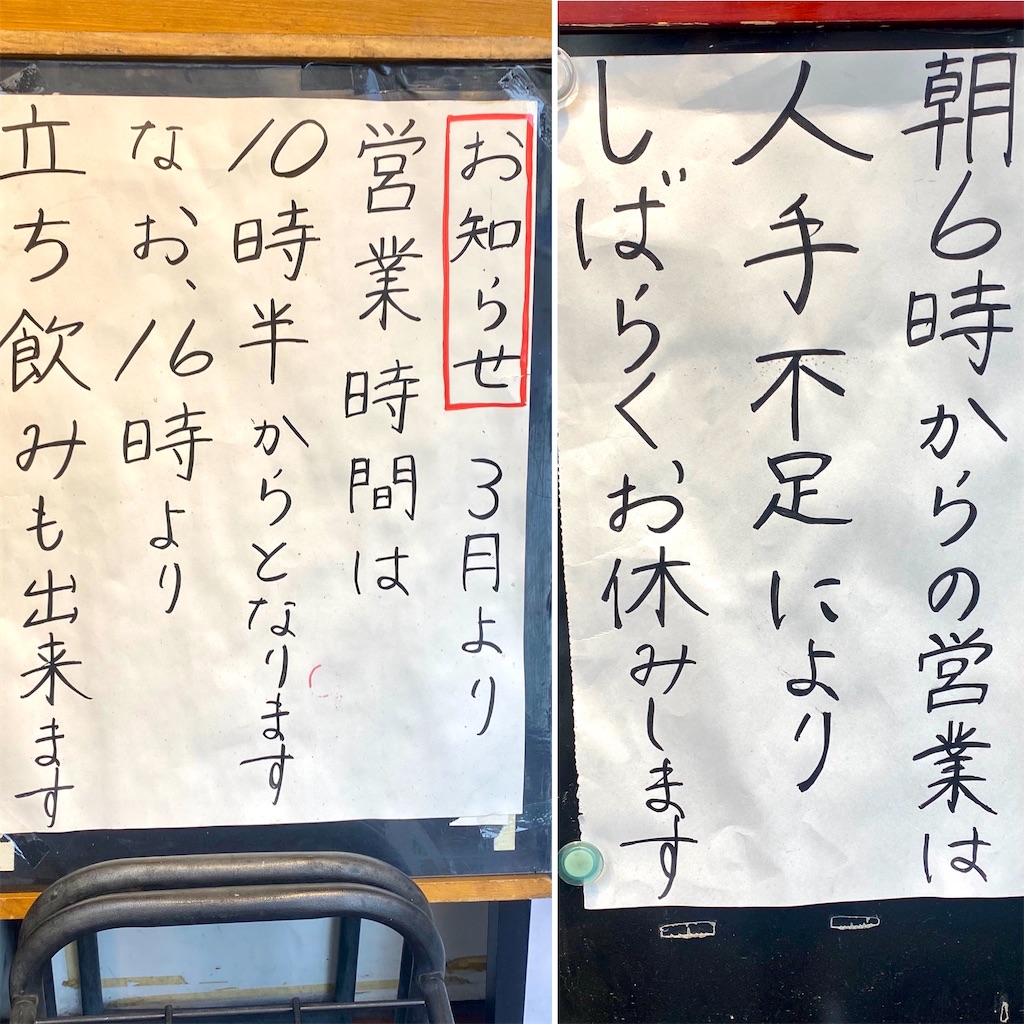 お知らせ 3月より
営業時間は
10時半からとなります
なお、16時より
立ち飲みも出来ます
朝6時からの営業は
人手不足により
しばらくお休みします